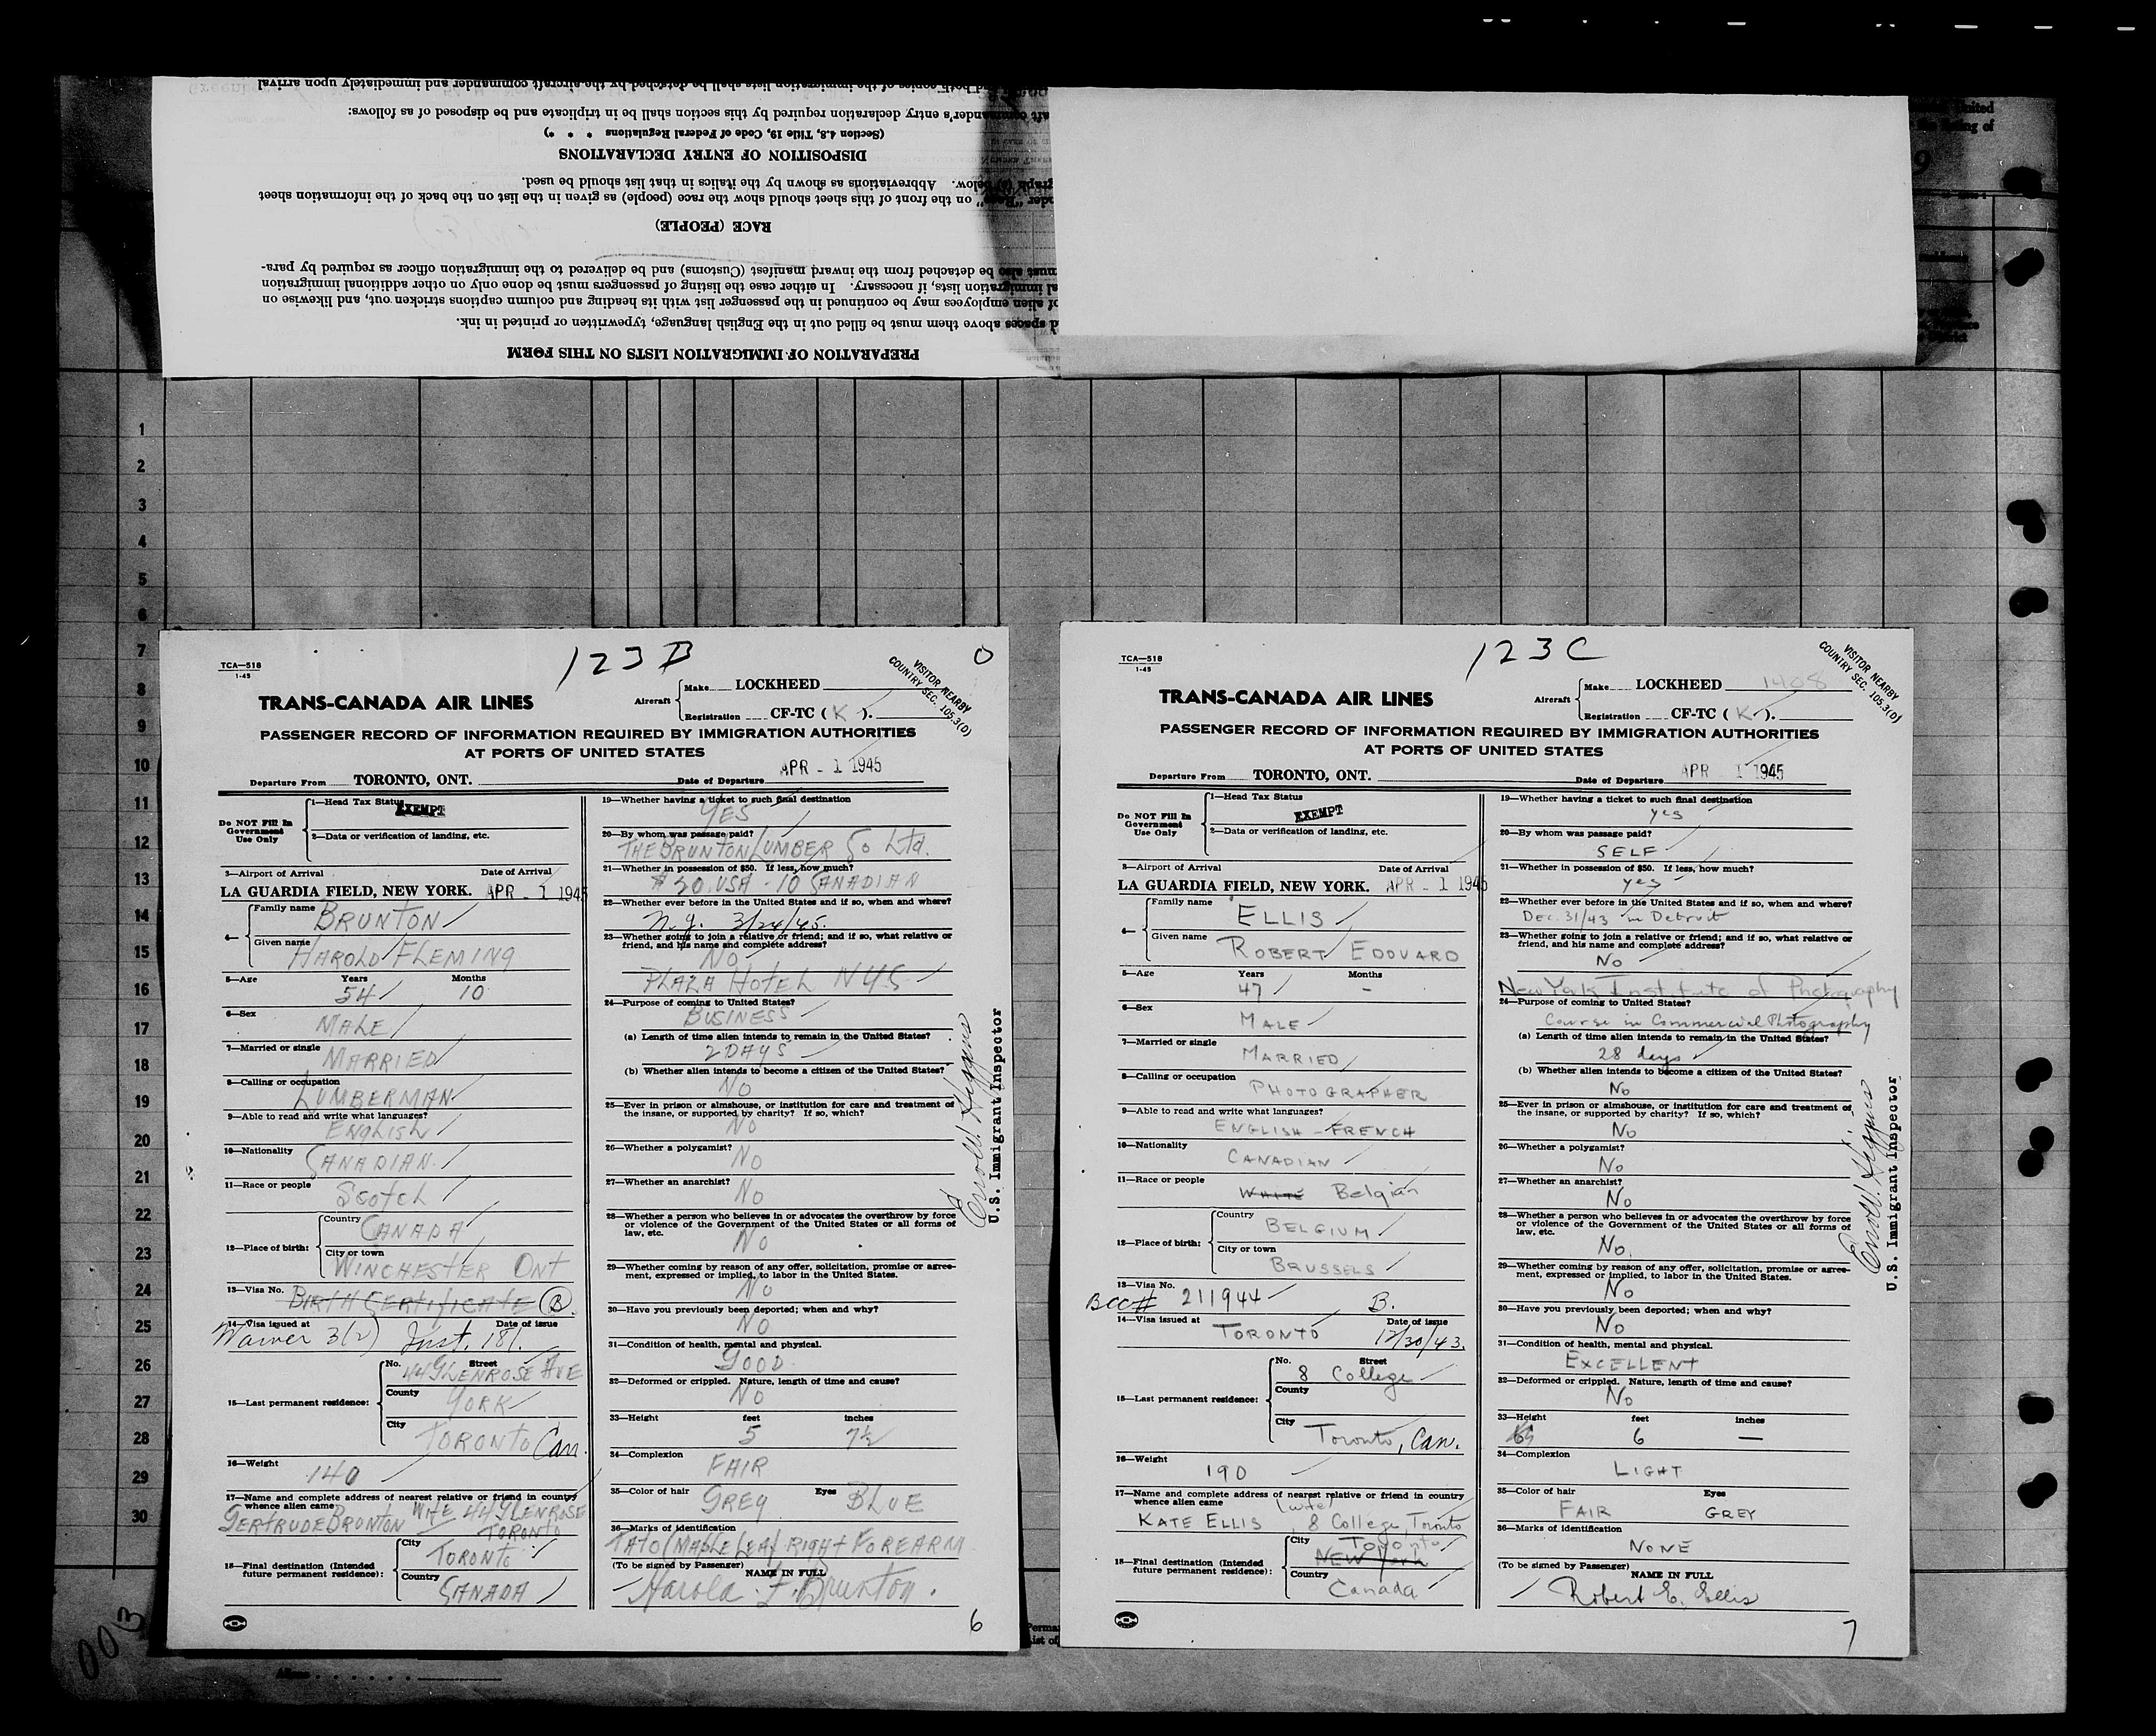 and both copies of the immigration lists shall be detached by the aircraft commander and immediately upon arrival
aft commander's entry declaration required by this section shall be in triplicate and be disposed of as follows:
(Section 4.8, Title 19, Code of Federal Regulations * * *)
DISPOSITION OF ENTRY DECLARATIONS
graph (e) below. Abbreviations as shown by the italics in that list should be used.
der "Race" on the front of this sheet should show the race (people) as given in the list on the back of the information sheet
RACE (PEOPLE)
must also be detached from the inward manifest (Customs) and be delivered to the immigration officer as required by para-
al immigration lists, if necessary. In either case the listing of passengers must be done only on other additional immigration
of alien employees may be continued in the passenger list with its heading and column captions stricken out, and likewise on
d spaces above them must be filled out in the English language, typewritten or printed in ink.
PREPARATION OF IMMIGRATION LISTS ON THIS FORM
1
2
3
4
5
6
7
8
9
10
11
12
13
14
15
16
17
18
19
20
21
22
23
24
25
26
27
28
29
30
003
TCA—518
1-45
123B
0
VISITOR NEARBY
COUNTRY SEC. 105.3(D)
TRANS-CANADA AIR LINES
Aircraft
Make LOCKHEED
Registration CF-TC ( K ).
PASSENGER RECORD OF INFORMATION REQUIRED BY IMMIGRATION AUTHORITIES
AT PORTS OF UNITED STATES
Departure From TORONTO, ONT. Date of Departure APR - 1 1945
Do NOT Fill In
Government
Use Only
1—Head Tax Status EXEMPT
2—Data or verification of landing, etc.
3—Airport of Arrival Date of Arrival
LA GUARDIA FIELD, NEW YORK. APR - 1 1945
4— Family name BRUNTON
Given name HAROLD FLEMING
5—Age Years Months
54 10
6—Sex
MALE
7—Married or single
MARRIED
8—Calling or occupation
LUMBERMAN
9—Able to read and write what languages?
ENGLISH
10—Nationality
CANADIAN
11—Race or people
Scotch
12—Place of birth: Country
CANADA
City or town
WINCHESTER ONT
13—Visa No. BIRTH CERTIFICATE B.
14—Visa issued at Date of issue
Waiver 3(2) Inst. 181.
15—Last permanent residence: No. Street
44 GLENROSE AVE
County
YORK
City
TORONTO Can.
16—Weight
140
17—Name and complete address of nearest relative or friend in country
whence alien came
GERTRUDE BRUNTON WIFE 44 GLENROSE
TORONTO
18—Final destination (Intended
future permanent residence): City
TORONTO
Country
CANADA
19—Whether having a ticket to such final destination
YES
20—By whom was passage paid?
THE BRUNTON LUMBER Co Ltd.
21—Whether in possession of $50. If less, how much?
$30 USA - 10 CANADIAN
22—Whether ever before in the United States and if so, when and where?
N.Y. 3/24/45.
23—Whether going to join a relative or friend; and if so, what relative or
friend, and his name and complete address?
NO
PLAZA HOTEL NYC
24—Purpose of coming to United States?
BUSINESS
(a) Length of time alien intends to remain in the United States?
2 DAYS
(b) Whether alien intends to become a citizen of the United States?
NO
25—Ever in prison or almshouse, or institution for care and treatment of
the insane, or supported by charity? If so, which?
NO
26—Whether a polygamist?
NO
27—Whether an anarchist?
NO
28—Whether a person who believes in or advocates the overthrow by force
or violence of the Government of the United States or all forms of
law, etc.
NO
29—Whether coming by reason of any offer, solicitation, promise or agree-
ment, expressed or implied, to labor in the United States.
NO
30—Have you previously been deported; when and why?
NO
31—Condition of health, mental and physical.
GOOD
32—Deformed or crippled. Nature, length of time and cause?
NO
33—Height feet inches
5 7½
34—Complexion
FAIR
35—Color of hair Eyes
GREY BLUE
36—Marks of identification
TATO (MAPLE LEAF RIGHT FOREARM
(To be signed by Passenger) NAME IN FULL
Harold F. Brunton.
6
U.S. Immigrant Inspector
TCA—518
1-45
123C
VISITOR NEARBY
COUNTRY SEC. 105.3(D)
TRANS-CANADA AIR LINES
Aircraft
Make LOCKHEED 1408
Registration CF-TC ( K ).
PASSENGER RECORD OF INFORMATION REQUIRED BY IMMIGRATION AUTHORITIES
AT PORTS OF UNITED STATES
Departure From TORONTO, ONT. Date of Departure APR 1 1945
Do NOT Fill In
Government
Use Only
1—Head Tax Status
EXEMPT
2—Data or verification of landing, etc.
3—Airport of Arrival Date of Arrival
LA GUARDIA FIELD, NEW YORK. APR - 1 1945
4— Family name
ELLIS
Given name
ROBERT EDOUARD
5—Age Years Months
47 -
6—Sex
MALE
7—Married or single
MARRIED
8—Calling or occupation
PHOTOGRAPHER
9—Able to read and write what languages?
ENGLISH - FRENCH
10—Nationality
CANADIAN
11—Race or people
WHITE Belgian
12—Place of birth: Country
BELGIUM
City or town
BRUSSELS
13—Visa No.
BCC# 211944 B.
14—Visa issued at Date of issue
TORONTO 12/30/43.
15—Last permanent residence: No. Street
8 College
County
City
Toronto, Can.
16—Weight
190
17—Name and complete address of nearest relative or friend in country
whence alien came (wife)
KATE ELLIS, 8 College, Toronto
18—Final destination (Intended
future permanent residence): City
Toronto
NEW York
Country
Canada
19—Whether having a ticket to such final destination
yes
20—By whom was passage paid?
SELF
21—Whether in possession of $50. If less, how much?
yes
22—Whether ever before in the United States and if so, when and where?
DEC. 31/43 in Detroit
23—Whether going to join a relative or friend; and if so, what relative or
friend, and his name and complete address?
No
New York Institute of Photography
24—Purpose of coming to United States?
Course in Commercial Photography
(a) Length of time alien intends to remain in the United States?
28 days
(b) Whether alien intends to become a citizen of the United States?
No
25—Ever in prison or almshouse, or institution for care and treatment of
the insane, or supported by charity? If so, which?
No
26—Whether a polygamist?
No
27—Whether an anarchist?
No
28—Whether a person who believes in or advocates the overthrow by force
or violence of the Government of the United States or all forms of
law, etc.
No.
29—Whether coming by reason of any offer, solicitation, promise or agree-
ment, expressed or implied, to labor in the United States.
No
30—Have you previously been deported; when and why?
No
31—Condition of health, mental and physical.
EXCELLENT
32—Deformed or crippled. Nature, length of time and cause?
No
33—Height feet inches
6 —
34—Complexion
LIGHT
35—Color of hair Eyes
FAIR GREY
36—Marks of identification
NONE
(To be signed by Passenger) NAME IN FULL
Robert E. Ellis
7
U.S. Immigrant Inspector